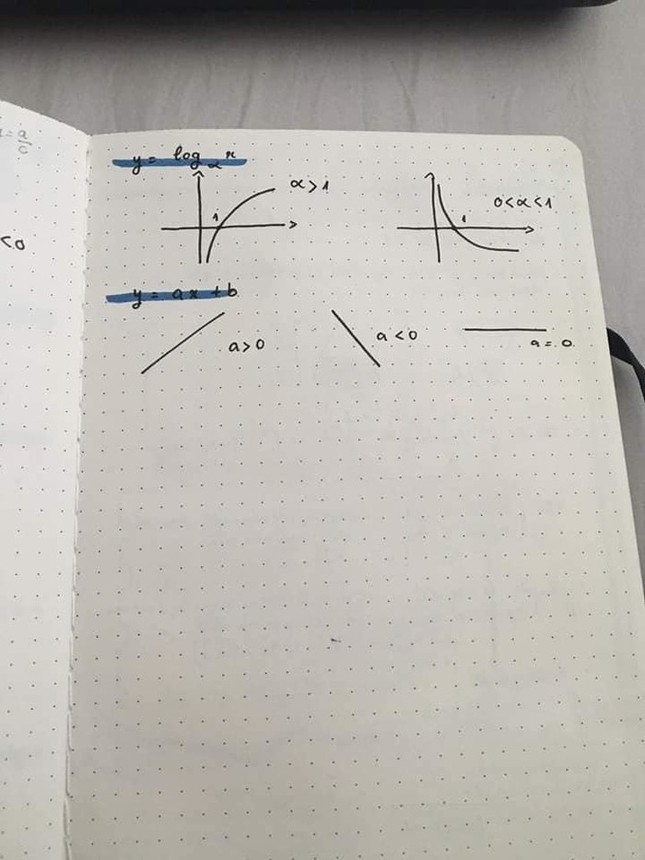 y = log_α x
α > 1
1
0 < α < 1
1
y = ax + b
a > 0
a < 0
a = 0
< 0